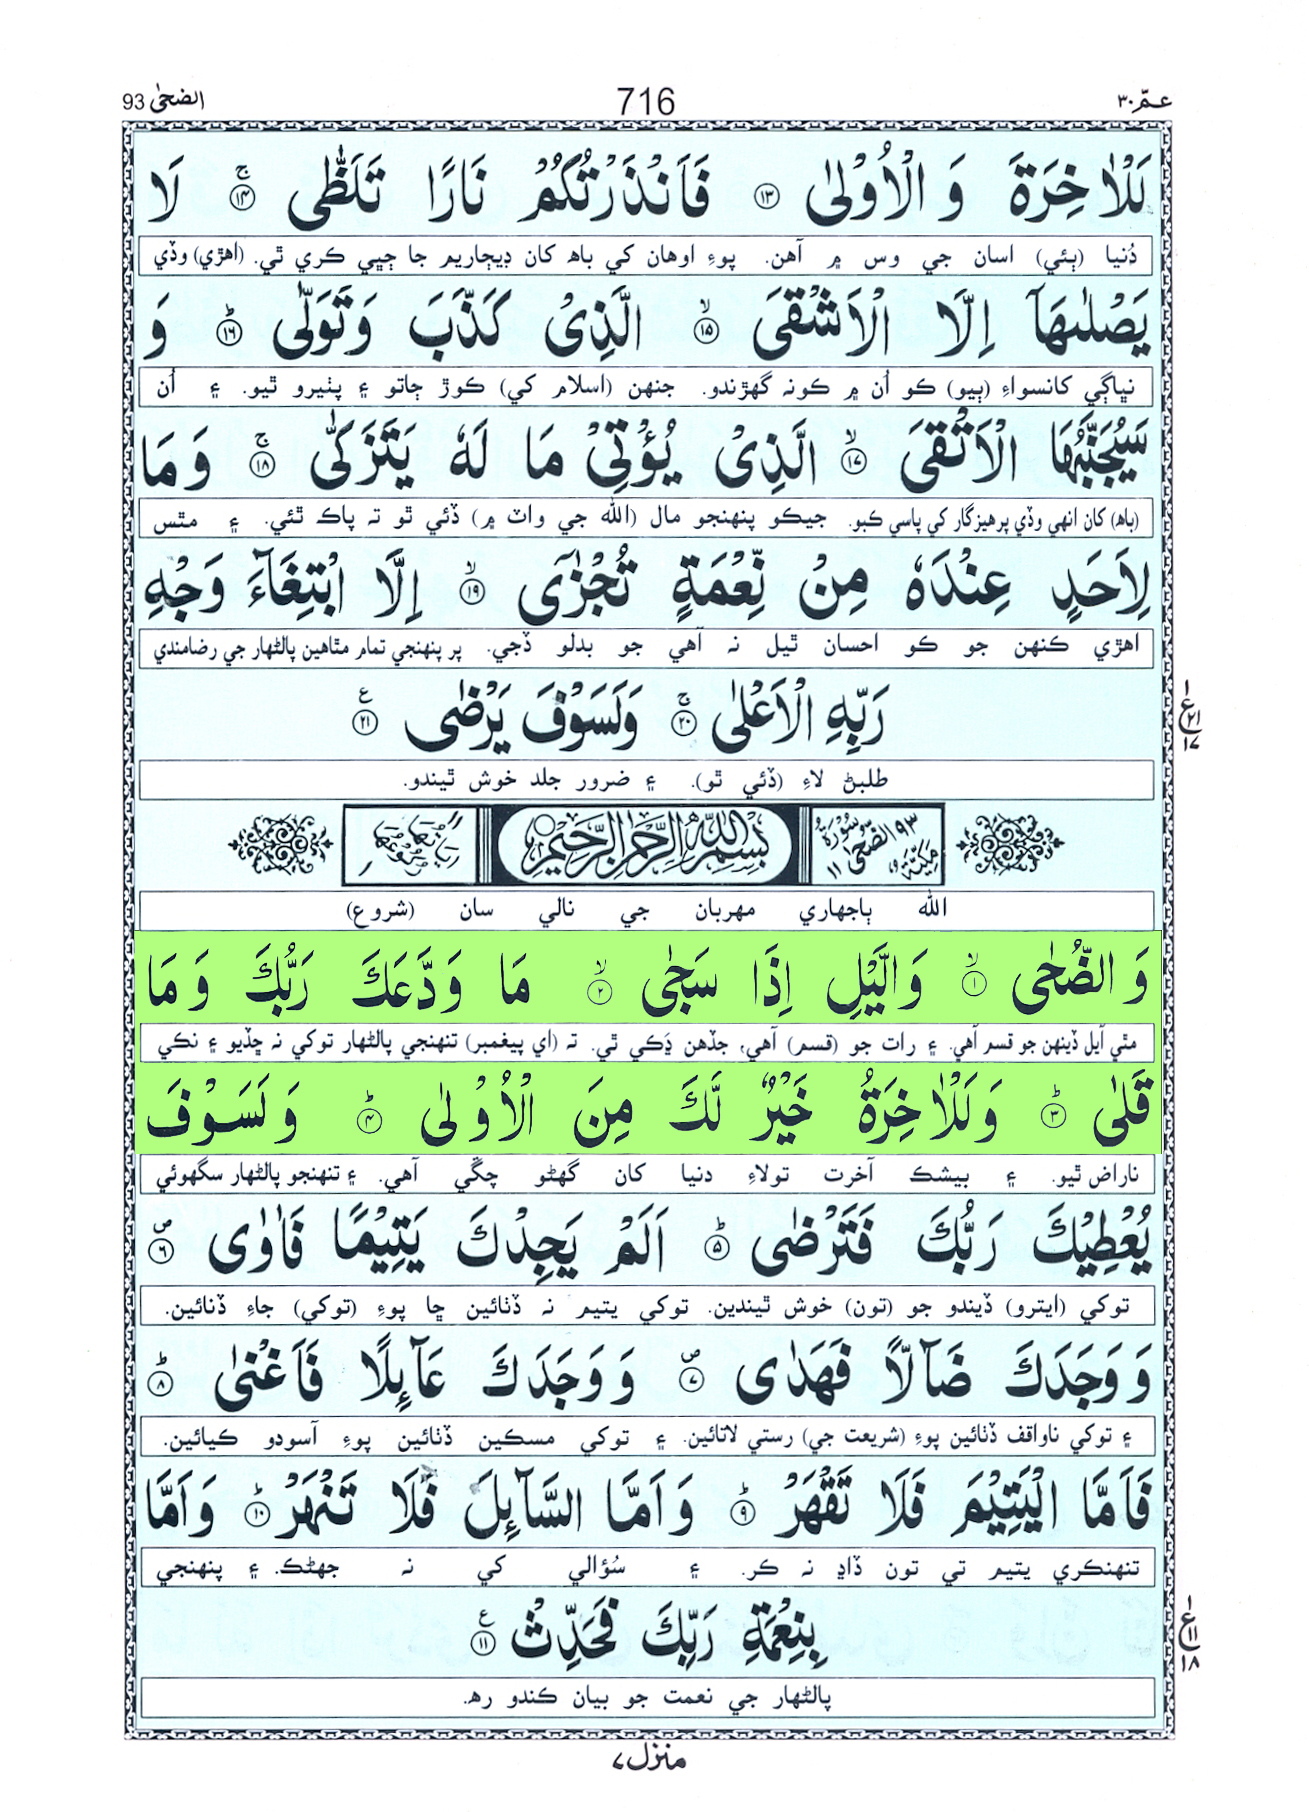 الضحى 93
716
عـمّ ٣٠
لَلْاٰخِرَةَ وَ الْاُوْلٰى ﴿۱۳﴾ فَاَنْذَرْتُكُمْ نَارًا تَلَظّٰى ﴿۱۴﴾ۚ لَا
دُنيا (ٻئي) اسان جي وس ۾ آهن. پوءِ اوهان کي باھ کان ڊيڄاريم جا ڄڀي ڪري ٿي. (اهڙي) وڏي
يَصْلٰىهَاۤ اِلَّا الْاَشْقَى ﴿۱۵﴾ۙ الَّذِىْ كَذَّبَ وَتَوَلّٰى ﴿۱۶﴾ؕ وَ
نڀاڳي کانسواءِ (ٻيو) ڪو اُن ۾ ڪونہ گھڙندو. جنهن (اسلام کي) ڪوڙ ڄاتو ۽ پٺيرو ٿيو. ۽ اُن
سَيُجَنَّبُهَا الْاَتْقَى ﴿۱۷﴾ۙ الَّذِىْ يُؤْتِىْ مَا لَهٗ يَتَزَكّٰى ﴿۱۸﴾ۚ وَمَا
(باھ) کان انهي وڏي پرهيزگار کي پاسي ڪبو. جيڪو پنهنجو مال (الله جي واٽ ۾) ڏئي ٿو تہ پاڪ ٿئي. ۽ مٿس
لِاَحَدٍ عِنْدَهٗ مِنْ نِّعْمَةٍ تُجْزٰٓى ﴿۱۹﴾ۙ اِلَّا ابْتِغَآءَ وَجْهِ
اهڙي ڪنهن جو ڪو احسان ٿيل نہ آهي جو بدلو ڏجي. پر پنهنجي تمام مٿاهين پالڻهار جي رضامندي
رَبِّهِ الْاَعْلٰى ﴿۲۰﴾ۚ وَلَسَوْفَ يَرْضٰى ﴿۲۱﴾ع
طلبڻ لاءِ (ڏئي ٿو). ۽ ضرور جلد خوش ٿيندو.
۹۳ سُوْرَةُ الضُّحٰى مَكِّيَّةٌ ۱۱ بِسْمِ اللهِ الرَّحْمٰنِ الرَّحِيْمِ
الله ٻاجهاري مهربان جي نالي سان (شروع)
وَ الضُّحٰى ﴿۱﴾ۙ وَالَّيْلِ اِذَا سَجٰى ﴿۲﴾ۙ مَا وَدَّعَكَ رَبُّكَ وَمَا
مٿي آيل ڏينهن جو قسم آهي. ۽ رات جو (قسم) آهي، جڏهن ڍَڪي ٿي. تہ (اي پيغمبر) تنهنجي پالڻهار توکي نہ ڇڏيو ۽ نڪي
قَلٰى ﴿۳﴾ؕ وَلَلْاٰخِرَةُ خَيْرٌ لَّكَ مِنَ الْاُوْلٰى ﴿۴﴾ؕ وَلَسَوْفَ
ناراض ٿيو. ۽ بيشڪ آخرت تولاءِ دنيا کان گھڻو چڱي آهي. ۽ تنهنجو پالڻهار سگھوئي
يُعْطِيْكَ رَبُّكَ فَتَرْضٰى ﴿۵﴾ؕ اَلَمْ يَجِدْكَ يَتِيْمًا فَاٰوٰى ﴿۶﴾ص
توکي (ايترو) ڏيندو جو (تون) خوش ٿيندين. توکي يتيم نہ ڏٺائين ڇا پوءِ (توکي) جاءِ ڏنائين.
وَوَجَدَكَ ضَآلًّا فَهَدٰى ﴿۷﴾ص وَوَجَدَكَ عَآئِلًا فَاَغْنٰى ﴿۸﴾ؕ
۽ توکي ناواقف ڏٺائين پوءِ (شريعت جي) رستي لاتائين. ۽ توکي مسڪين ڏٺائين پوءِ آسودو ڪيائين.
فَاَمَّا الْيَتِيْمَ فَلَا تَقْهَرْ ﴿۹﴾ؕ وَاَمَّا السَّآئِلَ فَلَا تَنْهَرْ ﴿۱۰﴾ؕ وَاَمَّا
تنهنڪري يتيم تي تون ڏاڍ نہ ڪر. ۽ سُؤالي کي نہ جھڻڪ. ۽ پنهنجي
بِنِعْمَةِ رَبِّكَ فَحَدِّثْ ﴿۱۱﴾ع
پالڻهار جي نعمت جو بيان ڪندو رھ.
منزل ۷